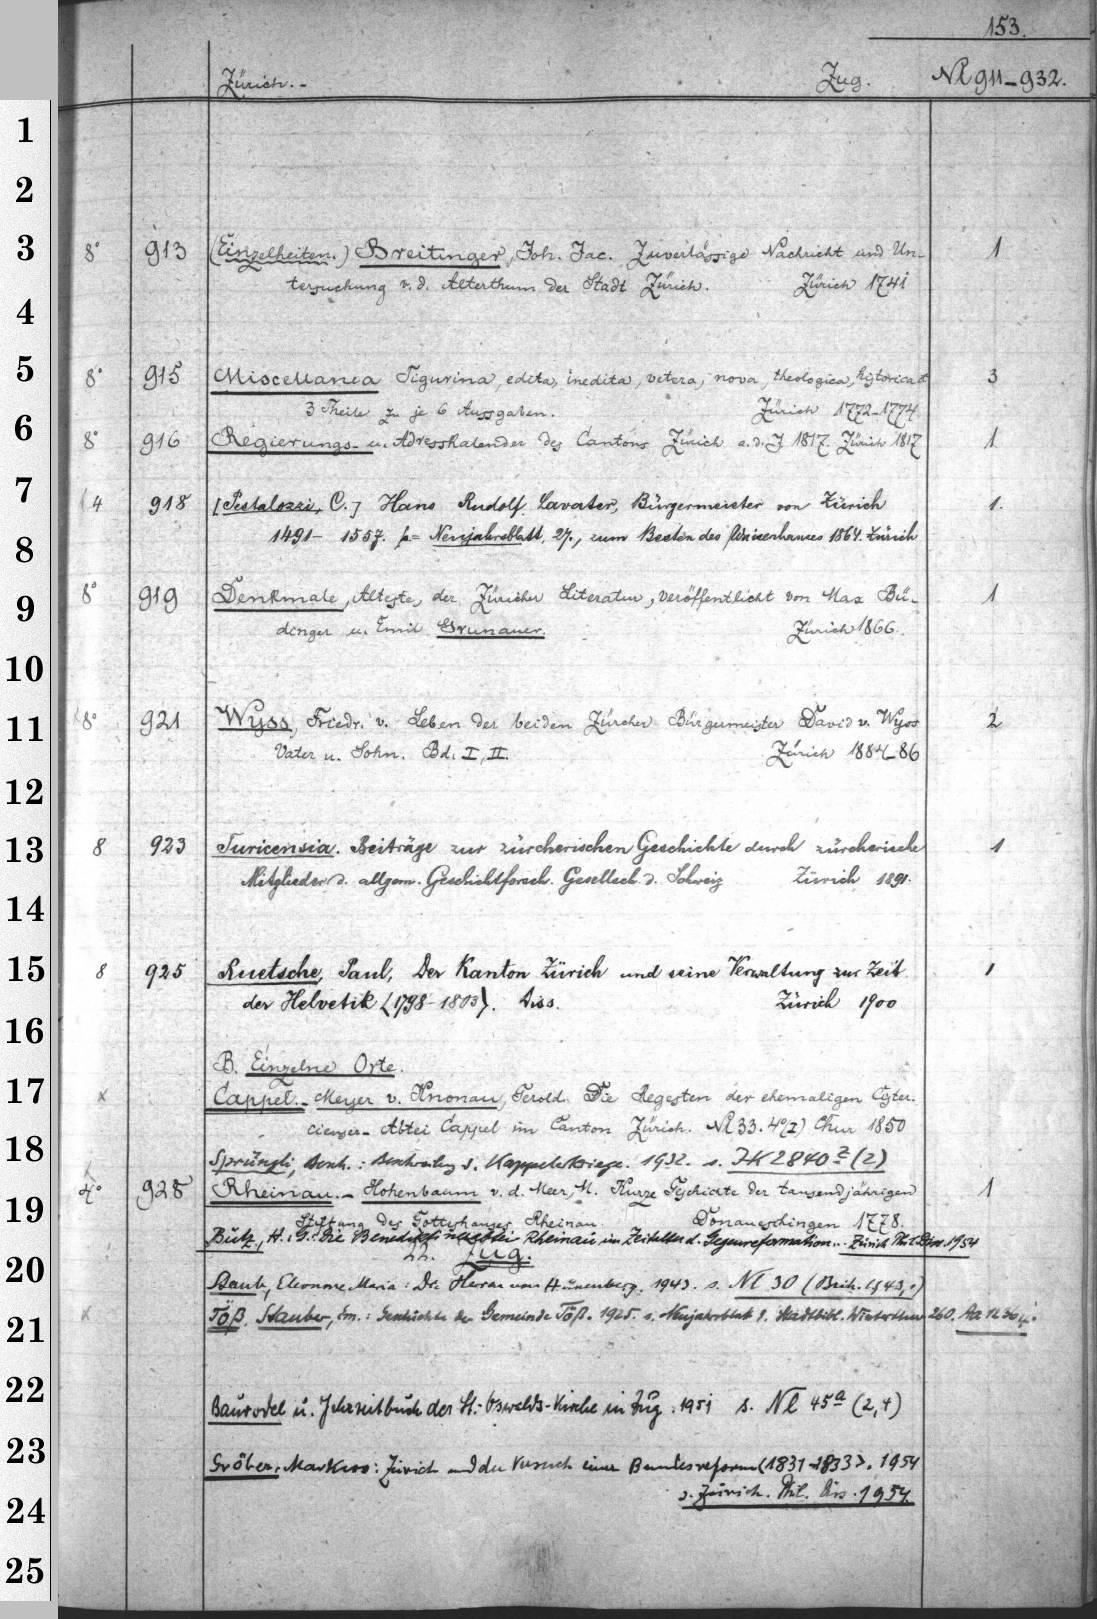 153.
Zürich. - Zug. Nl 911-932.
1
2
3 8° 913 (Einzelheiten.) Breitinger, Joh. Jac. Zuverlässige Nachricht und Un- 1
tersuchung v. d. Alterthum der Stadt Zürich. Zürich 1741
4
5 8° 915 Miscellanea Tigurina, edita, inedita, vetera, nova, theologica, historica et 3
3 Theile zu je 6 Ausgaben. Zürich 1772-1774
6 8° 916 Regierungs- u. Adresskalender des Cantons Zürich a. d. J 1817. Zürich 1817 1
7 4 918 [Pestalozzi, C.] Hans Rudolf Lavater, Bürgermeister von Zürich 1.
8 1491- 1557. = Neujahrsblatt, 27., zum Besten des Waisenhauses 1864. Zürich
9 8° 919 Denkmale, Älteste, der Züricher Literatur, veröffentlicht von Max Bü- 1
dinger u. Emil Grunauer. Zürich 1866.
10
11 8° 921 Wyss, Friedr. v. Leben der beiden Zürcher Bürgermeister David v. Wyss 2
Vater u. Sohn. Bd. I, II. Zürich 1884-86
12
13 8 923 Turicensia. Beiträge zur zürcherischen Geschichte durch zürcherische 1
Mitglieder d. allgem. Geschichtforsch. Gesellsch. d. Schweiz Zürich 1891.
14
15 8 925 Ruetsche, Paul, Der Kanton Zürich und seine Verwaltung zur Zeit 1
der Helvetik (1798-1803). Diss. Zürich 1900
16
B. Einzelne Orte.
17 x Cappel. - Meyer v. Knonau, Gerold. Die Regesten der ehemaligen Cister-
cienser-Abtei Cappel im Canton Zürich. Nl 33. 4°(I) Chur 1850
18 Sprüngli, : d. Kappelerkriege. 1932. s. JK 2840 z (2)
4° 928 Rheinau. - Hohenbaum v. d. Meer, M. Kurze Geschichte der tausendjährigen 1
19 Stiftung des Gotteshauses Rheinau. Donaueschingen 1778.
Bütz, H. G.: Die Benediktinerabtei Rheinau im Zeitalter d. Gegenreformation... Zürich Phil. Diss. 1954
22. Zug.
20 Staub, Eleonore Maria: Dr. Herr von Hünenberg. 1943. s. Nl 30 (Beih. 1943,1)
21 x Töß. Stauber, Em.: Geschichte der Gemeinde Töß. 1925. s. Neujahrsblatt d. Stadtbibl. Winterthur 260. Aa
22 Baurodel u. Jahrzeitbuch der St.-Oswalds-Kirche in Zug. 1951 s. Nl 45a (2,4)
23 Gröber, Markus: Zürich und der Versuch einer Bundesreform (1831-1833). 1954
24 s. Zürich. Phil. Diss. 1954.
25